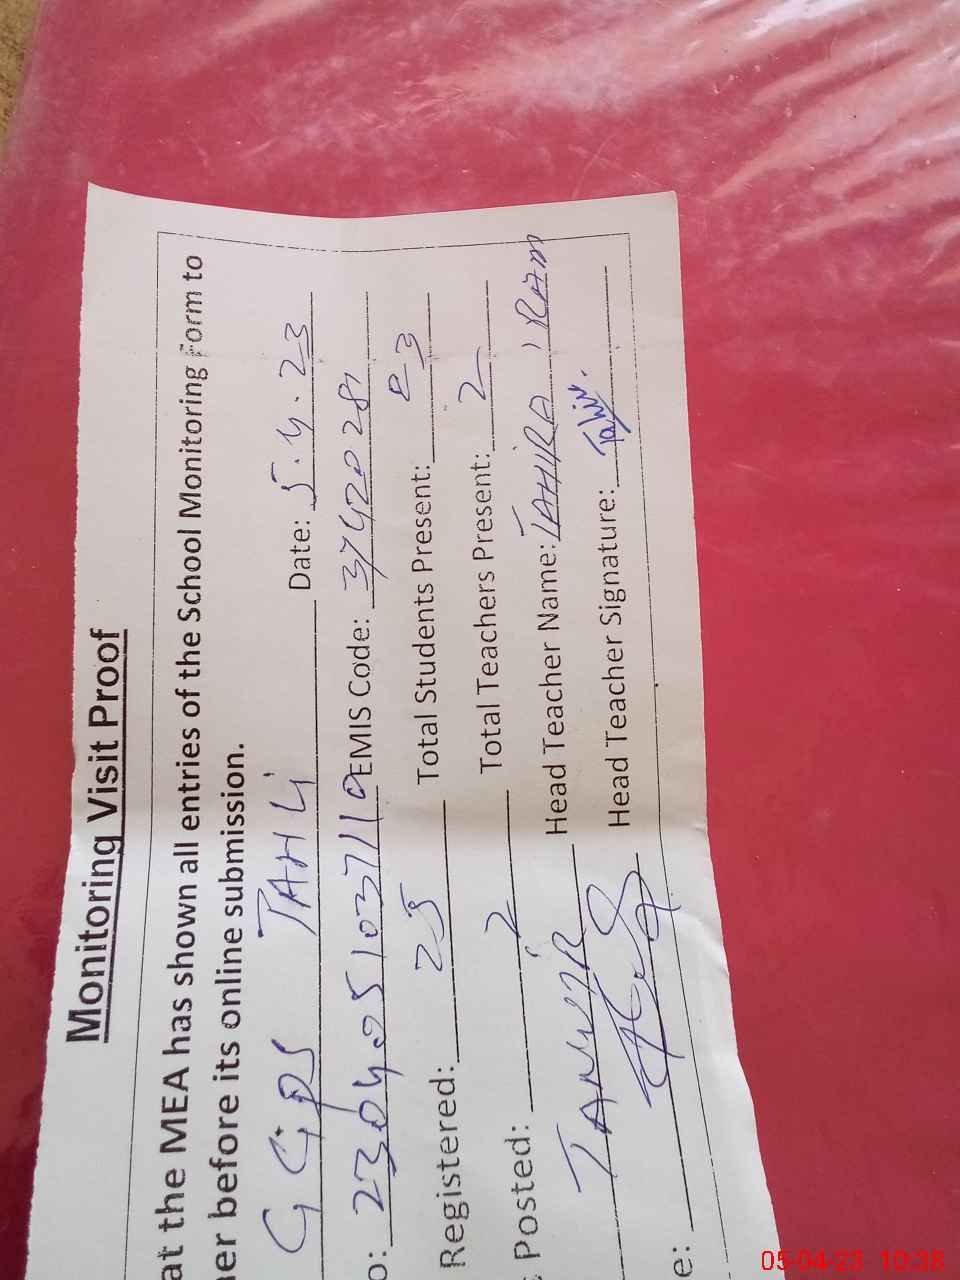 Monitoring Visit Proof
at the MEA has shown all entries of the School Monitoring Form to
er before its online submission.
GGPS TAHLI Date: 5.4.23
o: 230405103711 EMIS Code: 37420281
Registered: 25 Total Students Present: 23
Posted: 2 Total Teachers Present: 2
TANWIR Head Teacher Name: TAHIRA IRAM
Head Teacher Signature:
e:
05-04-23 10:38